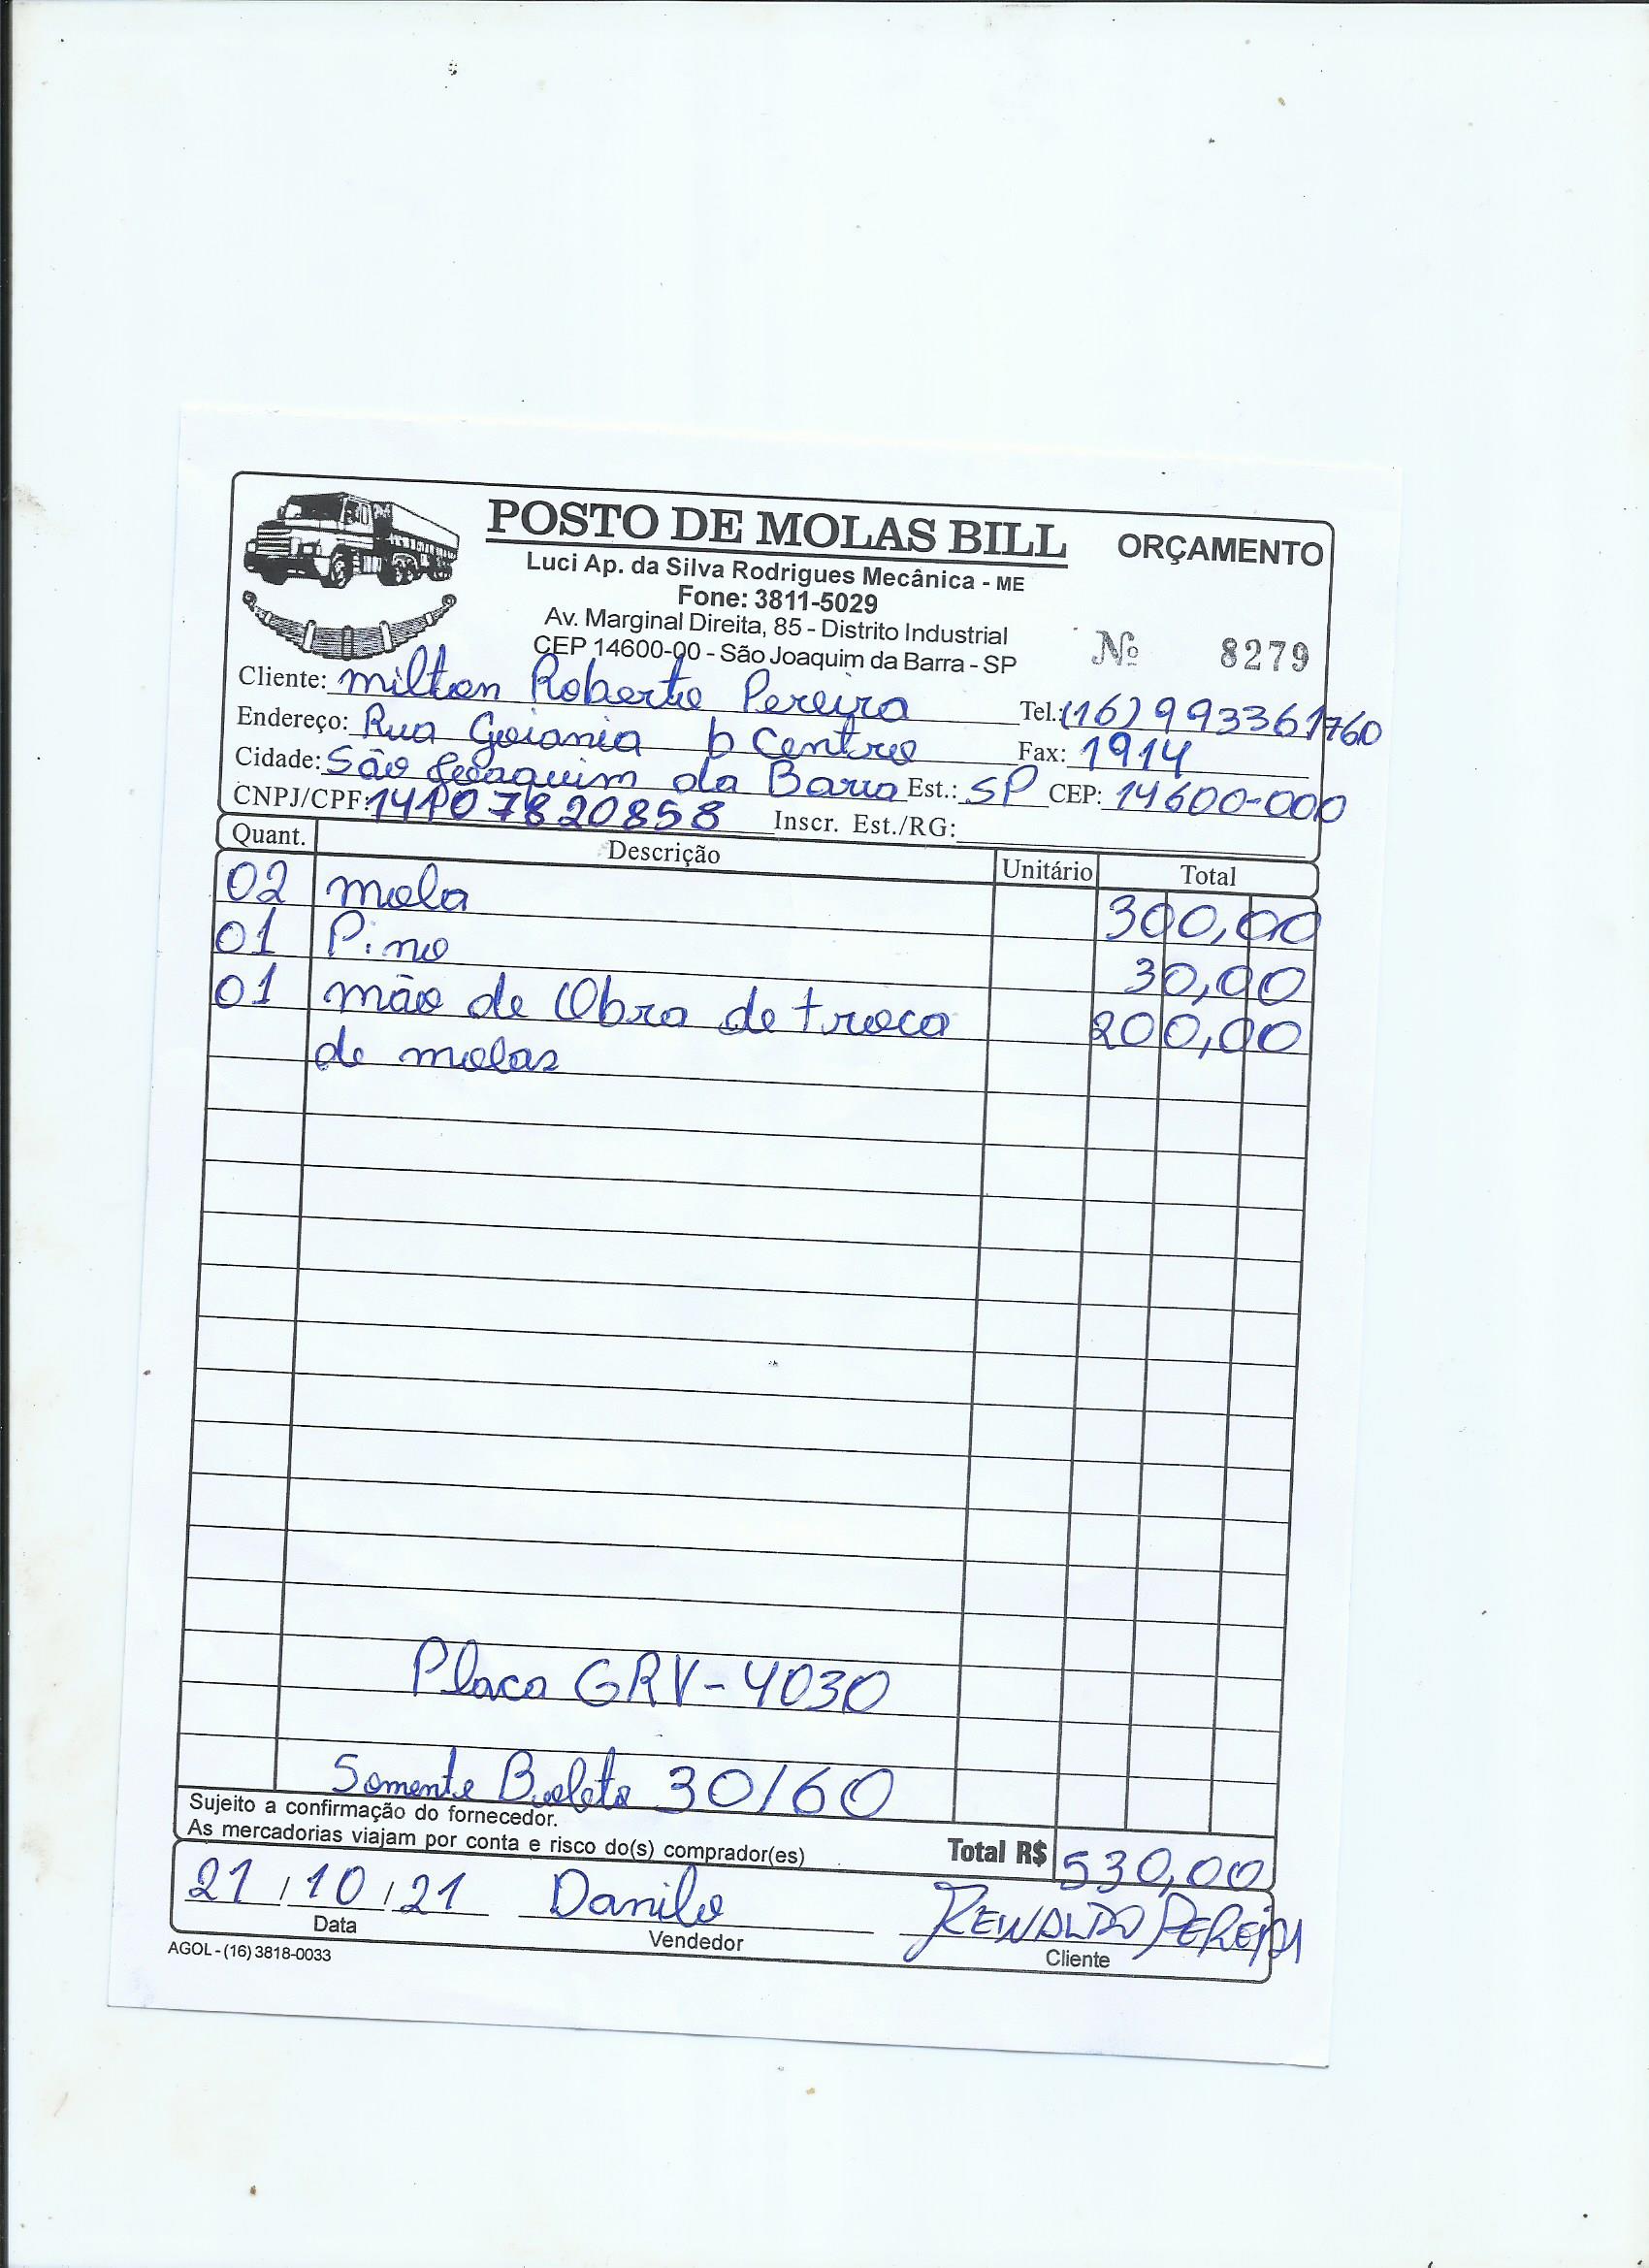 POSTO DE MOLAS BILL
ORÇAMENTO
Luci Ap. da Silva Rodrigues Mecânica - ME
Fone: 3811-5029
Av. Marginal Direita, 85 - Distrito Industrial
CEP 14600-00 - São Joaquim da Barra - SP
Nº 8279
Cliente: Milton Roberto Pereira Tel.: (16) 993361760
Endereço: Rua Goiania b Centro Fax: 1914
Cidade: São Joaquim da Barra Est.: SP CEP: 14600-000
CNPJ/CPF: 14107820858 Inscr. Est./RG:
Quant. Descrição Unitário Total
02 mola 300,00
01 Pino 30,00
01 mão de Obra de troca 200,00
de molas
Placa GRV-4030
Somente Boleto 30/60
Sujeito a confirmação do fornecedor.
As mercadorias viajam por conta e risco do(s) comprador(es)
Total R$ 530,00
21/10/21 Danilo REINALDO PEREIRA
Data Vendedor Cliente
AGOL - (16) 3818-0033